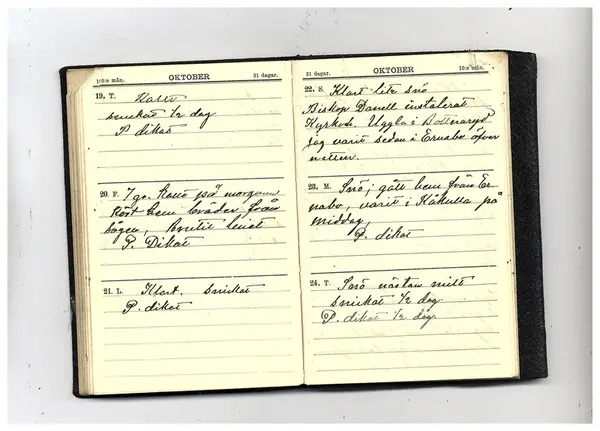 10:e mån. OKTOBER 31 dagar.
19. T. Kallt
snickat 1/2 dag
P dikat
20. F. 7 gr. kallt på morgonen
kört hem bräder från
sågen,
P. Dikat
21. L. Klart. snickat
P. dikat
31 dagar. OKTOBER 10:e mån.
22. S. Klart lite snö
Biskop Danell instalerat
Kyrkoh. Uggla i Bottnaryd
jag varit sedan i Ernabo öfver
natten.
23. M. Snö, gått hem från Er-
nabo, varit i Kakulla på
middag,
P. dikat
24. T. Snö nästan mitt
snickat 1/2 dag
P. dikat 1/2 dag.